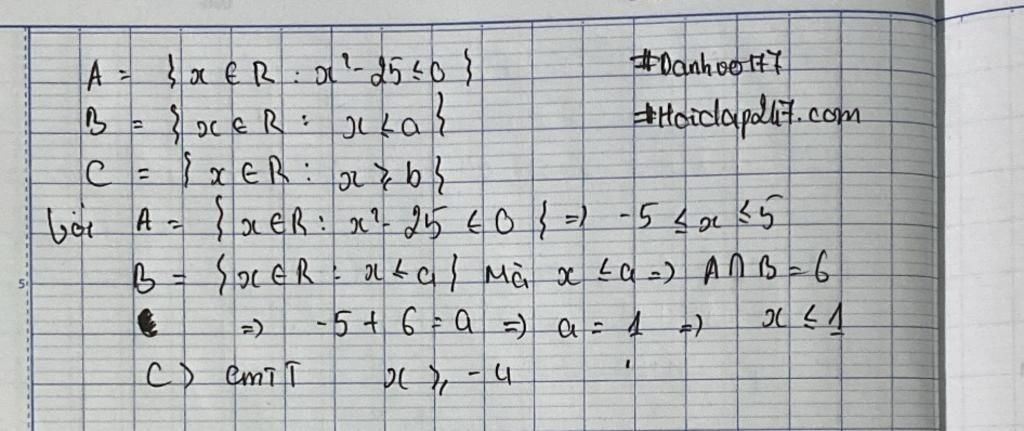 A = { x ∈ R : x² - 25 ≤ 0 } #Danhoo117
B = { x ∈ R : x ≤ a } #Hoidap247.com
C = { x ∈ R : x ≥ b }
Với A = { x ∈ R : x² - 25 ≤ 0 } => -5 ≤ x ≤ 5
B = { x ∈ R : x ≤ a } Mà x ≤ a => A ∩ B = 6
=> -5 + 6 = a => a = 1 => x ≤ 1
C) CmTT x ≥ -4